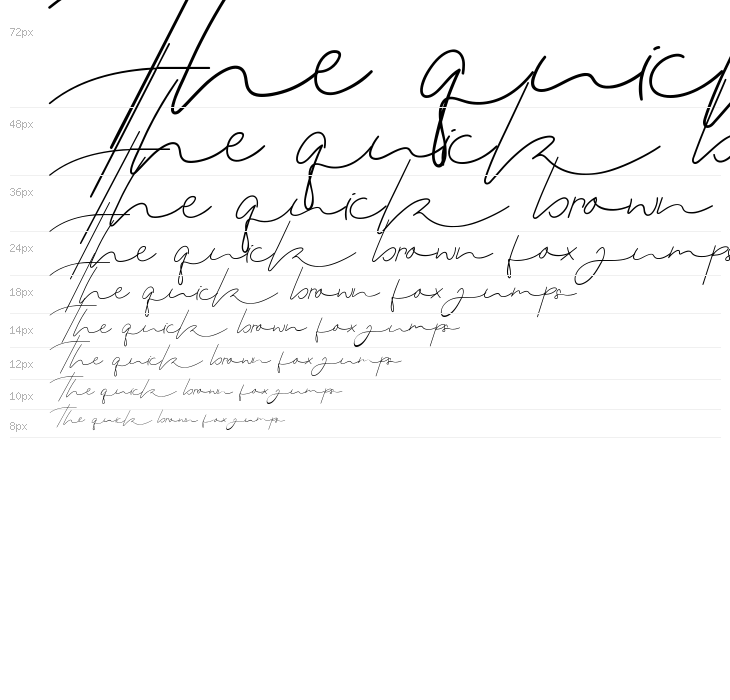 72px The quick
48px The quick b
36px The quick brown
24px The quick brown fox jumps
18px The quick brown fox jumps
14px The quick brown fox jumps
12px The quick brown fox jumps
10px The quick brown fox jumps
8px The quick brown fox jumps